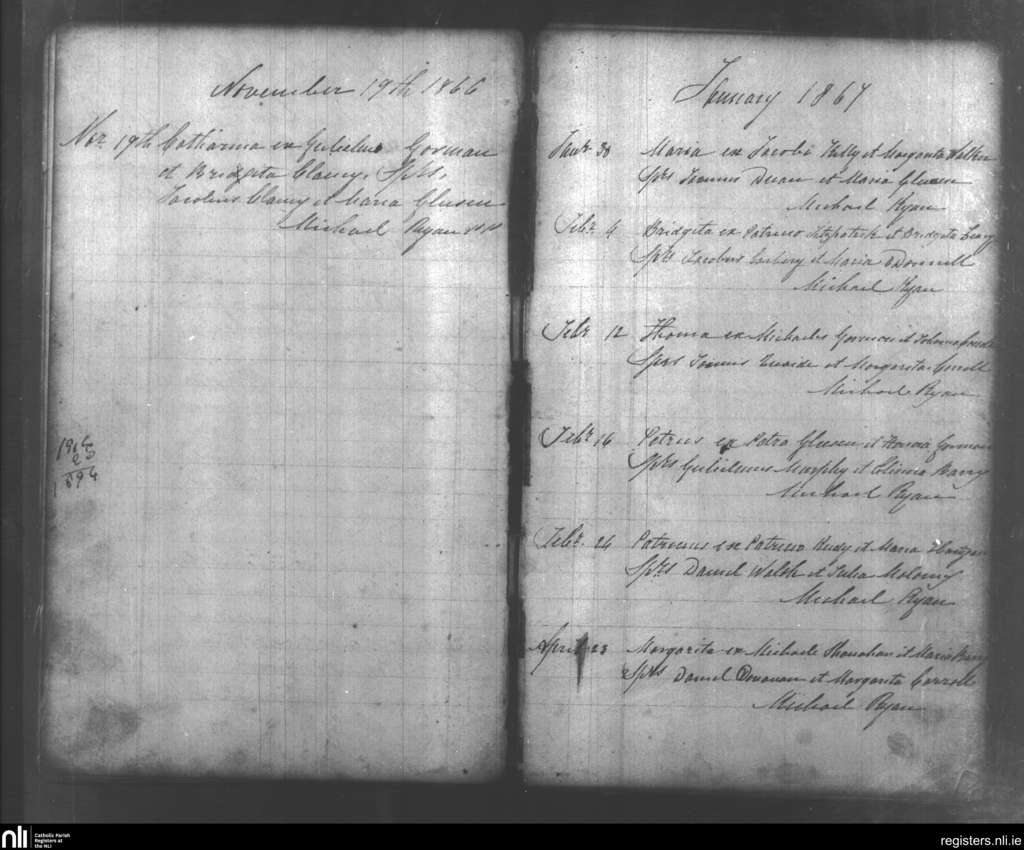 November 19th 1866
Nov. 19th Catharina ex Gulielmo Gorman
et Bridgita Clancy. Spts.
Jacobus Clancy et Maria Gleeson
Michael Ryan
1916
23
1894
January 1867
Janr 30 Maria ex Jacobi Tully et Margarita Walker
Sprs Joannes Dwan et Maria Gleeson
Michael Ryan
Febr. 4 Bridgita ex Patricio Fitzpatrick et Bridgita Leary
Sprs Jacobus et Maria O Donnell
Michael Ryan
Febr 12 Thoma ex Michaeli Gorman et Johanna
Sprs Joannes et Margarita
Michael Ryan
Febr 16 Petrus ex Petro Gleeson et Honora Gorman
Sprs Gulielmus Murphy et Barry
Michael Ryan
Febr. 24 Patricius ex Patricio et Maria
Sprs Daniel Walsh et Julia Molony
Michael Ryan
April 23 Margarita ex Michaele Shanahan et Maria Barry
Sprs Daniel Donovan et Margarita Carroll
Michael Ryan
nli
Catholic Parish
Registers at
the NLI
registers.nli.ie